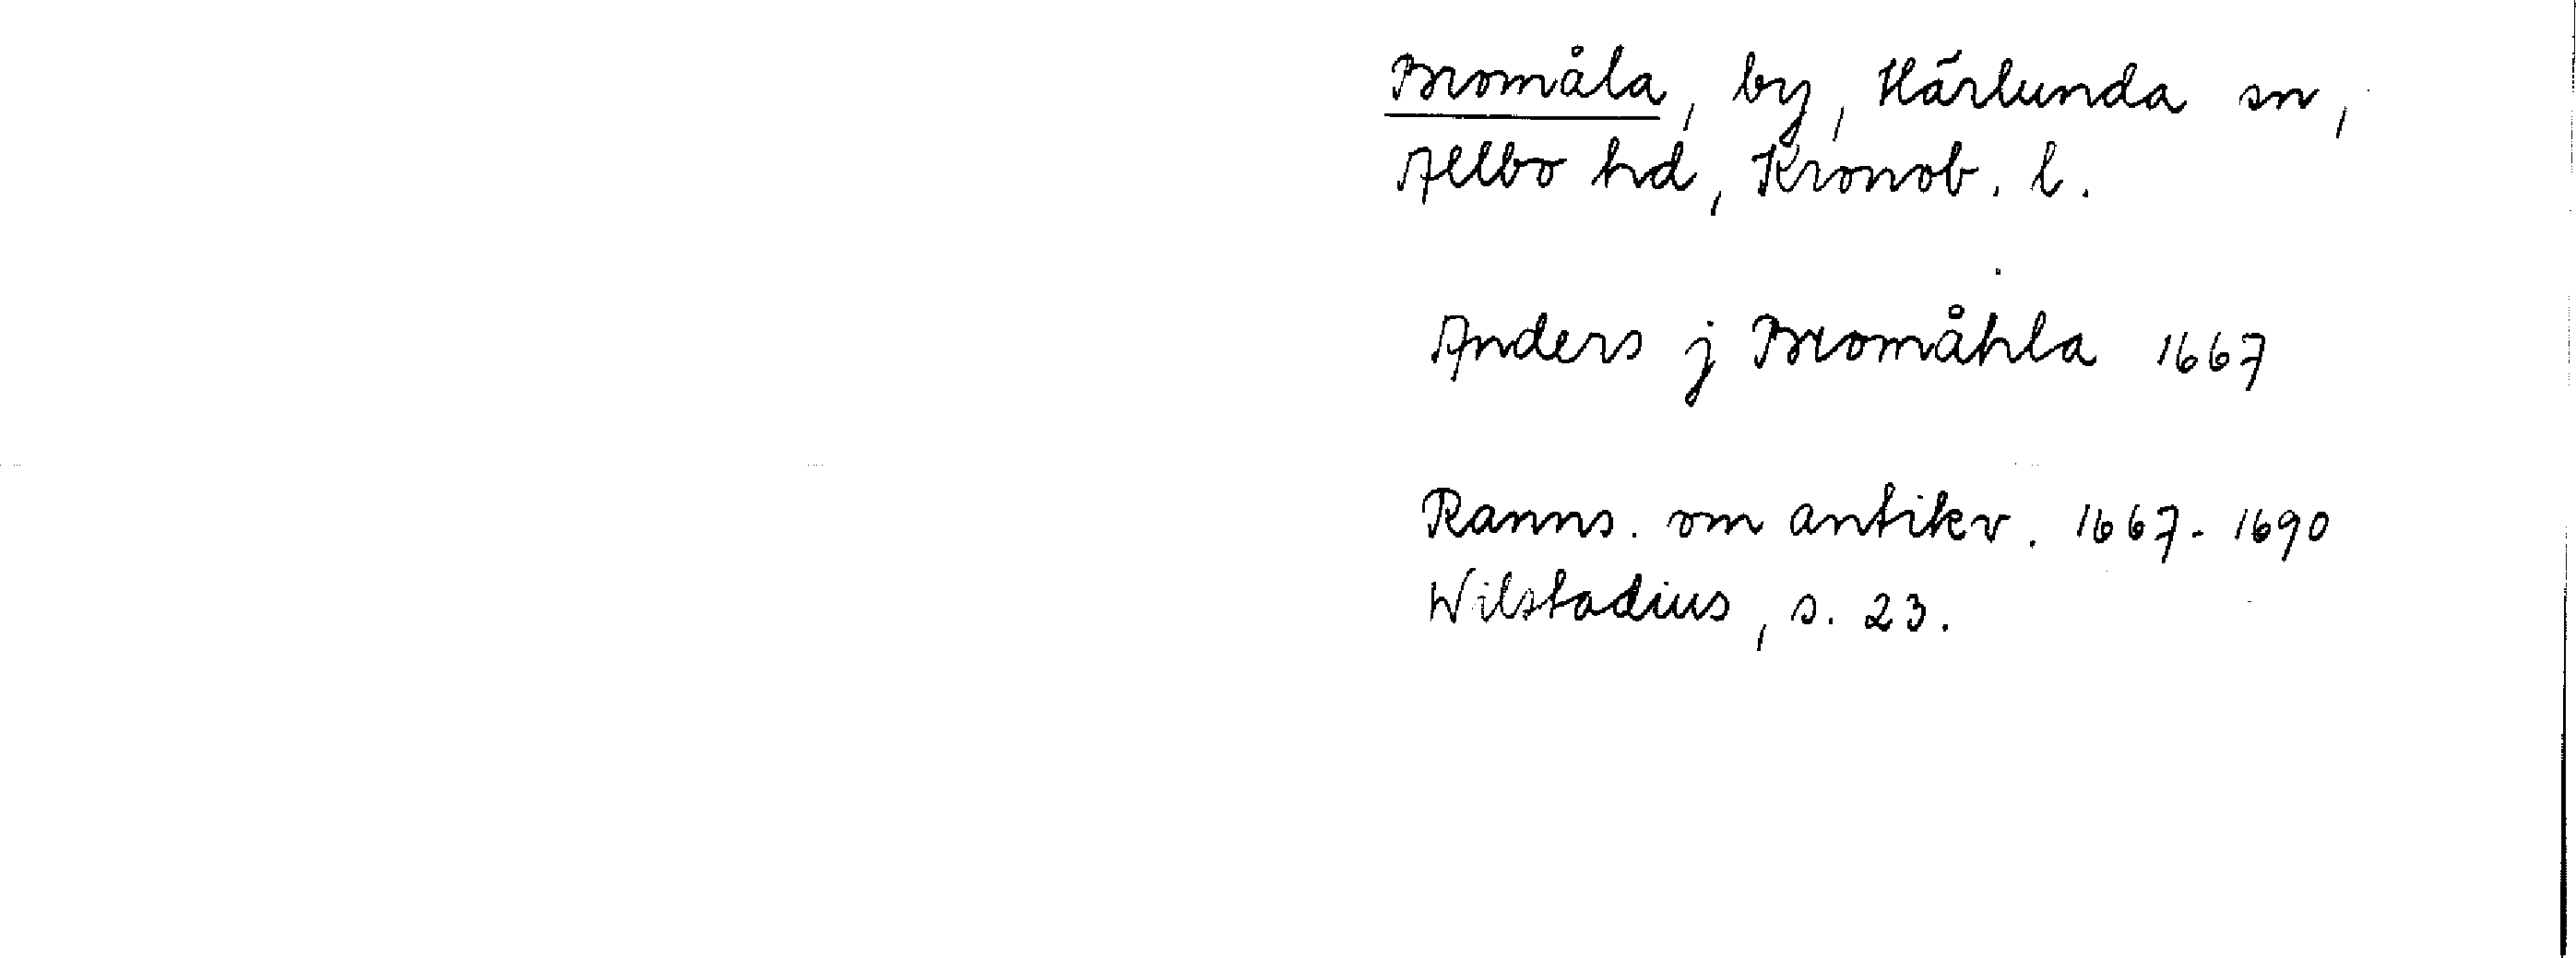 Bromåla, by, Härlunda sn,
Allbo hd, Kronob. l.
Anders j Bromåhla 1667
Ranns. om antikv. 1667-1690
Wilstadius, s. 23.